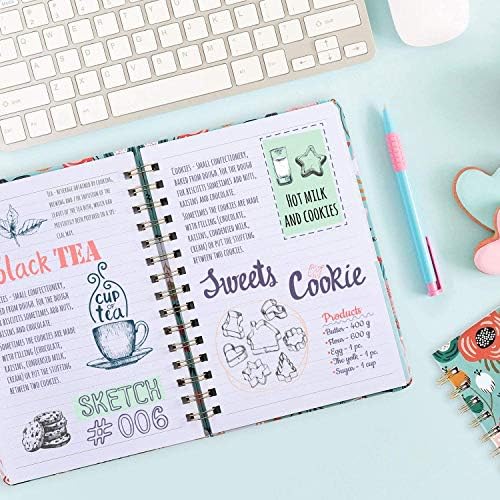 Tea - beverage obtained by cooking,
brewing and / or infusion of the
leaves of the tea bush, which had
previously been prepared in a spe-
cial way.
black TEA
Cookies - small confectionery,
baked from dough. For the dough
for biscuits sometimes add nuts,
for grains.
Sometimes the cookies are made
with filling (chocolate,
raisins, condensed milk,
cream) or put the stuffing
between two cookies.
CUP
of
tea
SKETCH
# 006
Cookies - small confectionery,
baked from dough. For the dough
for biscuits sometimes add nuts,
for grains.
Sometimes the cookies are made
with filling (chocolate,
raisins, condensed milk,
cream) or put the stuffing
between two cookies.
HOT MILK
AND COOKIES
Sweets Cookie
Products
- Butter - 400 g
- Flour - 600 g
- Egg - 1 pc.
- The yolk - 1 pc.
- Sugar - 1 cup